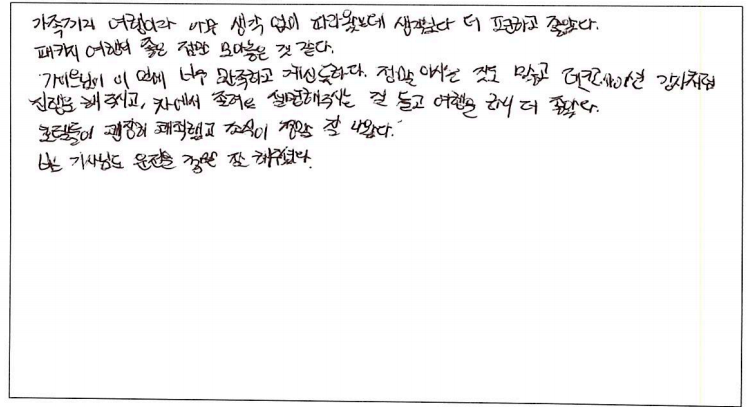 가족끼리 여행이라 아무 생각 없이 따라왔는데 생각보다 더 편하고 좋았다.
패키지 여행의 좋은 점만 모아놓은 것 같다.
가이드님이 이 일에 너무 만족하고 계신듯하다. 정말 아시는 것도 많고
진행을 해 주시고, 차에서 졸려도 설명해주시는 걸 듣고 여행을 하니 더 좋았다.
호텔들이 굉장히 쾌적했고 조식이 정말 잘 나왔다.
버스 기사님도 운전을 정말 잘 해주셨다.